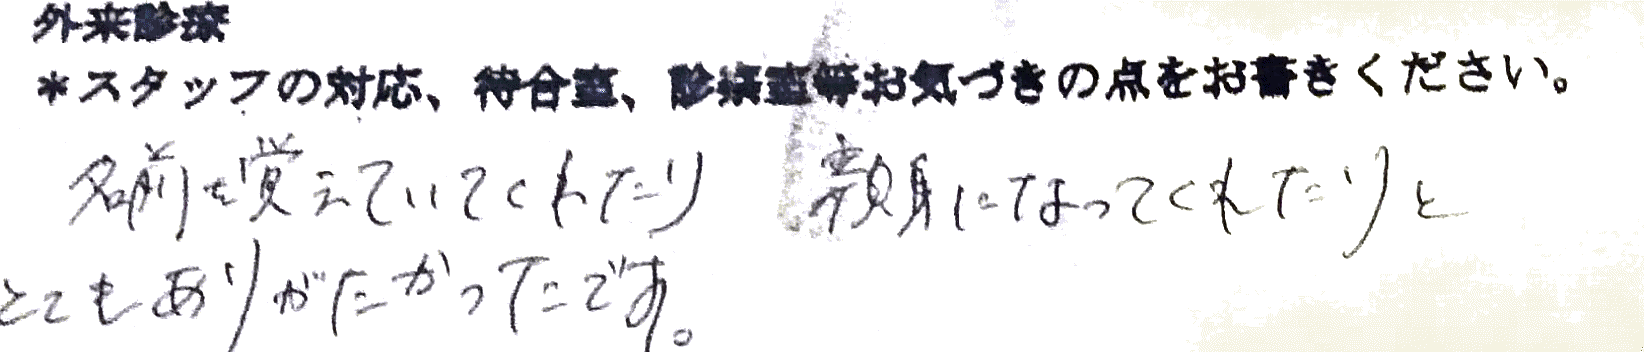 外来診療
*スタッフの対応、待合室、診察室等お気づきの点をお書きください。
名前を覚えていてくれたり 親身になってくれたりと
とてもありがたかったです。